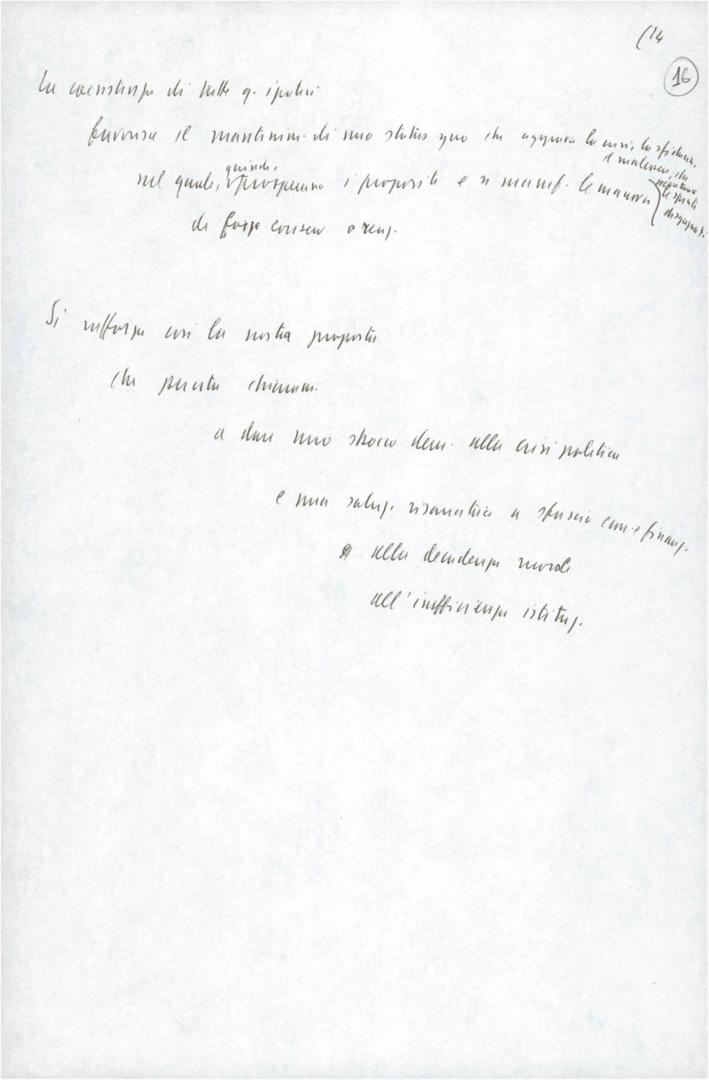 (14
16
La coesistenza di tutte q. ipotesi
favorisce il mantenim. di uno status quo che aggrava la crisi, la sfiducia,
il malessere, che
nel quale, quindi, prosperano i propositi e si manif. le manovre
le spinte
disgreg.
di forze conserv. o reaz.
Si rafforza così la nostra proposta
che punta chiaram.
a dare uno sbocco dem. alla crisi politica
e una soluz. risanatrice a sfascio econ. e finanz.
alla decadenza morale
all'inefficienza istituz.